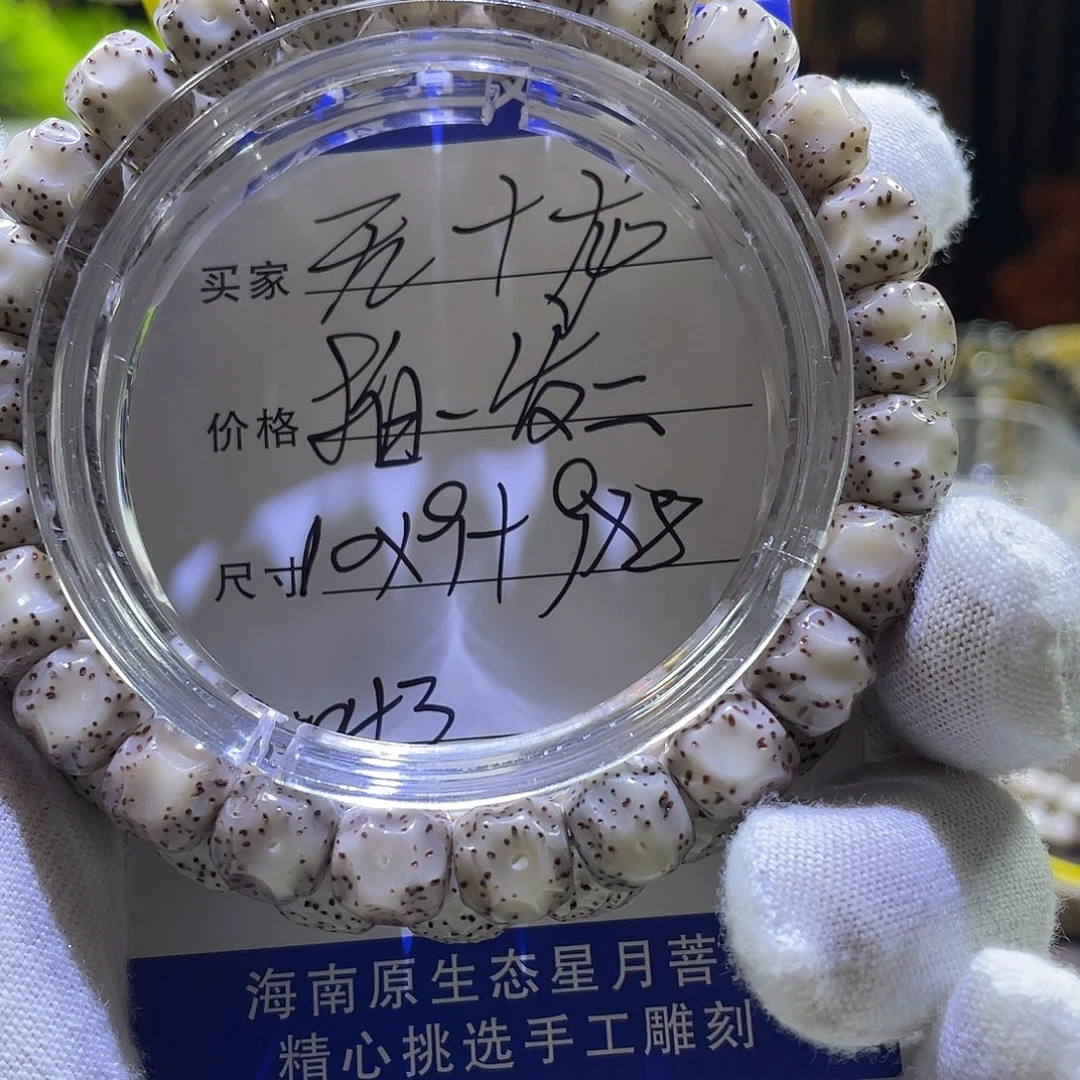 买家 无十岁
价格 拍一发二
尺寸 10×9+9×8
+3
海南原生态星月菩
精心挑选手工雕刻